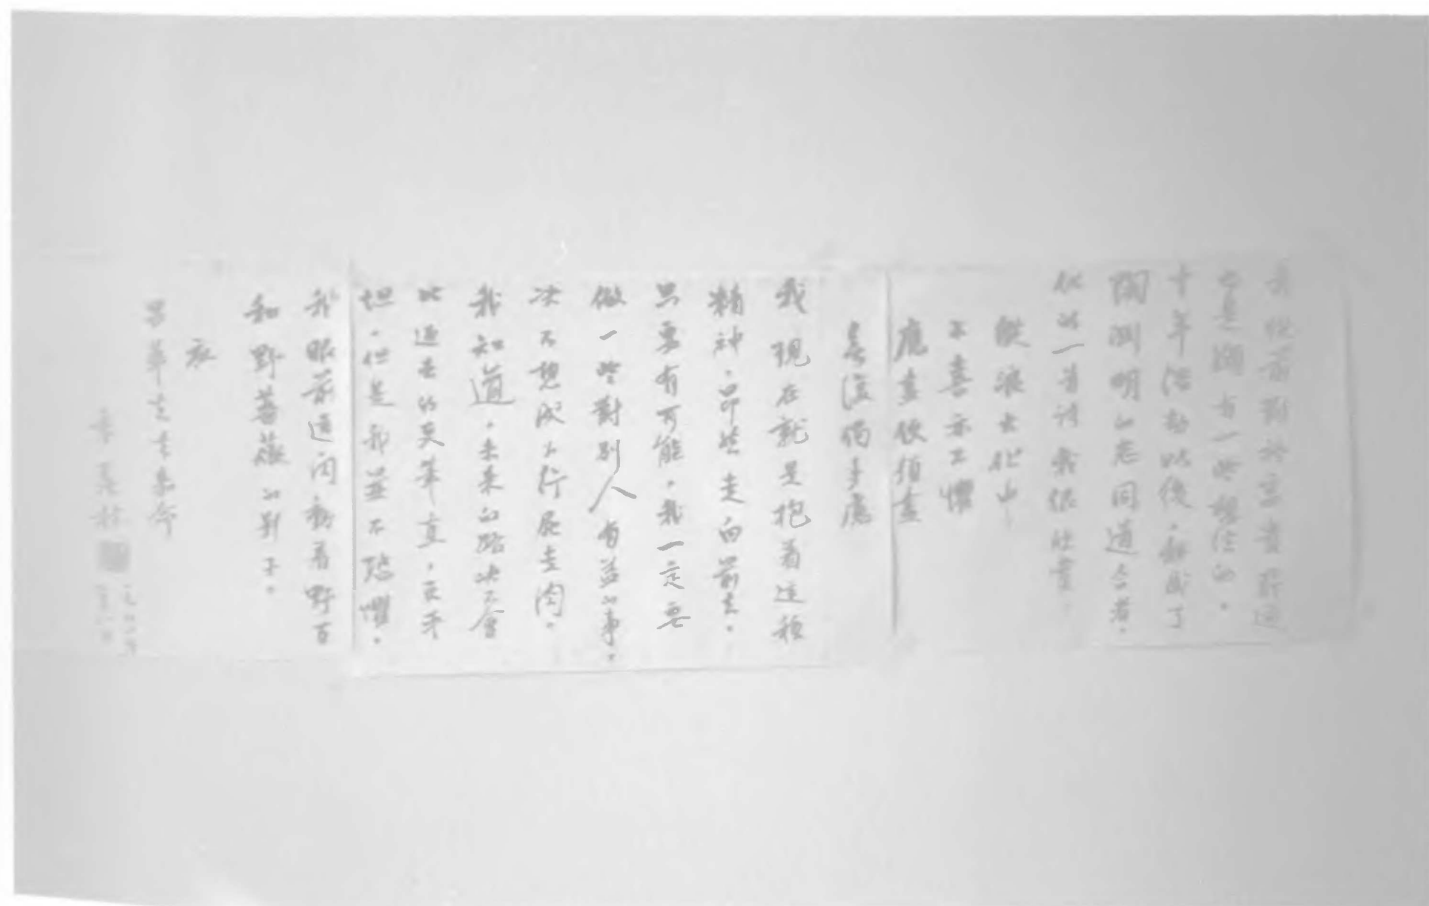 我從前對於
也是頗有一些
十年浩劫以後,我成了
陶淵明的志同道合者。
他的一首詩我很欣賞:
縱浪大化中
不喜亦不懼
應盡便須盡
無復獨多慮
我現在就是抱着這種
精神,昂然走向前去。
只要有可能,我一定要
做一些對別人有益的事,
決不想成为行屍走肉。
我知道,未来的路決不會
比過去的更筆直,更平
坦,但是我並不恐懼。
我眼前還閃動着野百
和野薔薇的影子。
應
先生
季羨林